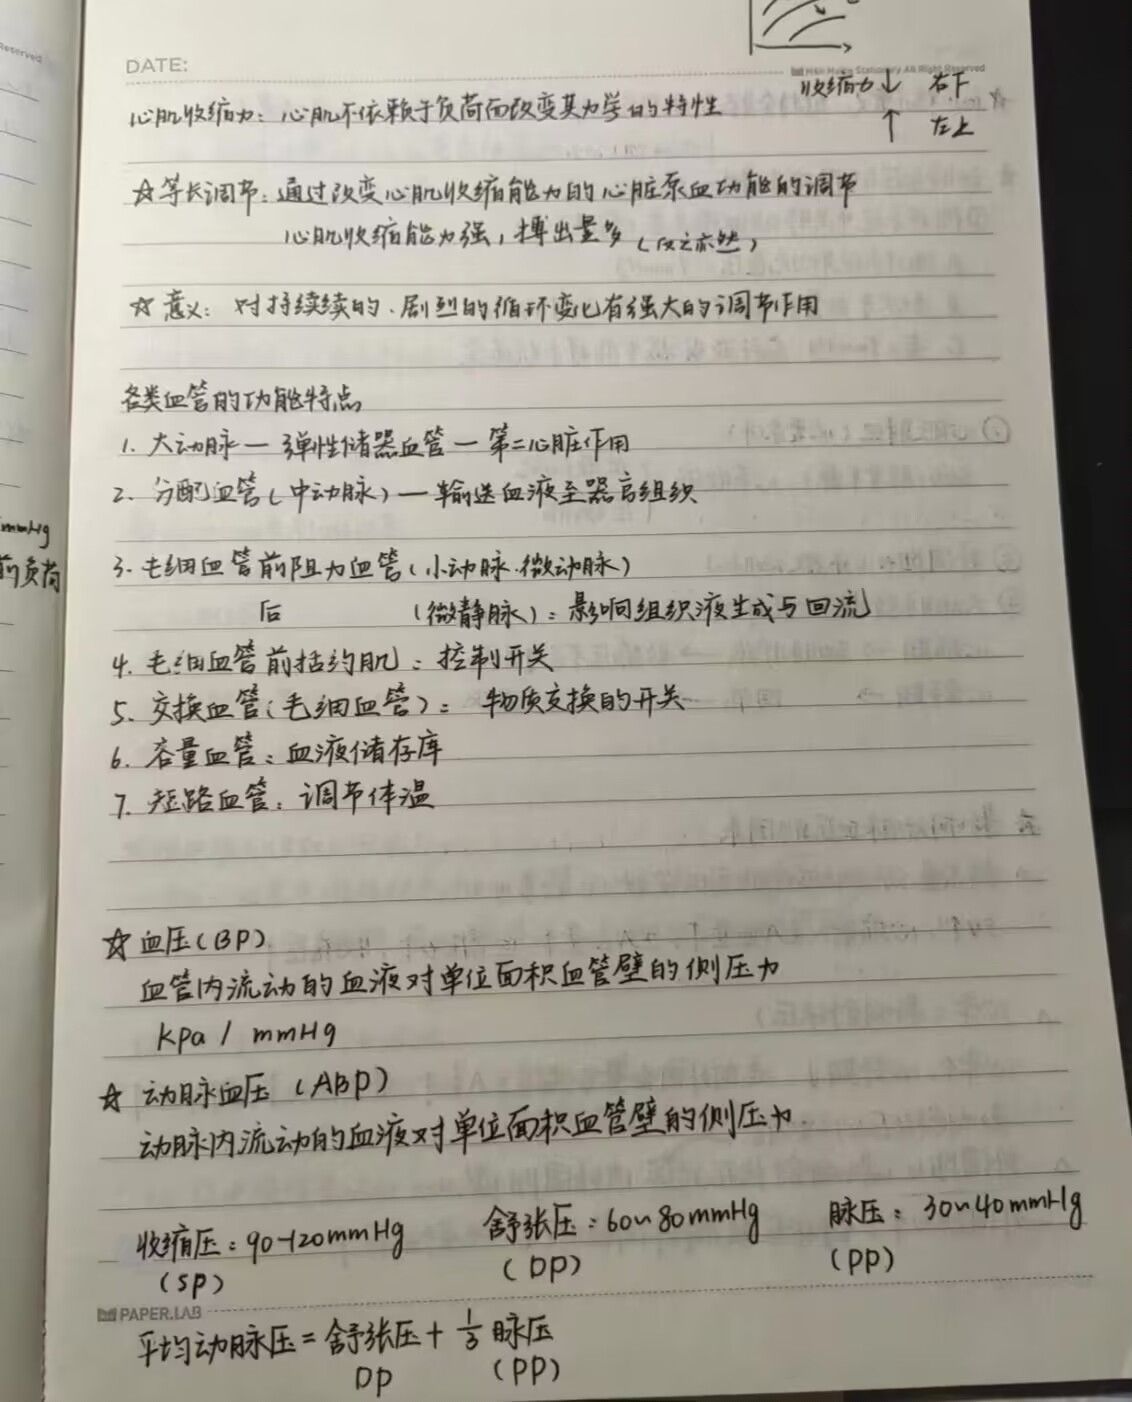 Reserved
DATE:
Stationery All Right Reserved
收缩力↓ 右下
↑ 左上
心肌收缩力：心肌不依赖于负荷而改变其力学的特性
☆等长调节：通过改变心肌收缩能力的心脏泵血功能的调节
心肌收缩能力强，搏出量多（反之亦然）
☆意义：对持续续的、剧烈的循环变化有强大的调节作用
各类血管的功能特点
1. 大动脉—弹性储器血管—第二心脏作用
2. 分配血管（中动脉）—输送血液至器官组织
mmHg
前负荷
3. 毛细血管前阻力血管（小动脉.微动脉）
后 （微静脉）：影响组织液生成与回流
4. 毛细血管前括约肌：控制开关
5. 交换血管（毛细血管）：物质交换的开关
6. 容量血管：血液储存库
7. 短路血管：调节体温
☆ 血压（BP）
血管内流动的血液对单位面积血管壁的侧压力
kpa / mmHg
☆ 动脉血压（ABP）
动脉内流动的血液对单位面积血管壁的侧压力
收缩压：90-120mmHg 舒张压：60~80mmHg 脉压：30~40mmHg
（SP） （DP） （PP）
PAPER.LAB
平均动脉压=舒张压+1/3 脉压
DP （PP）